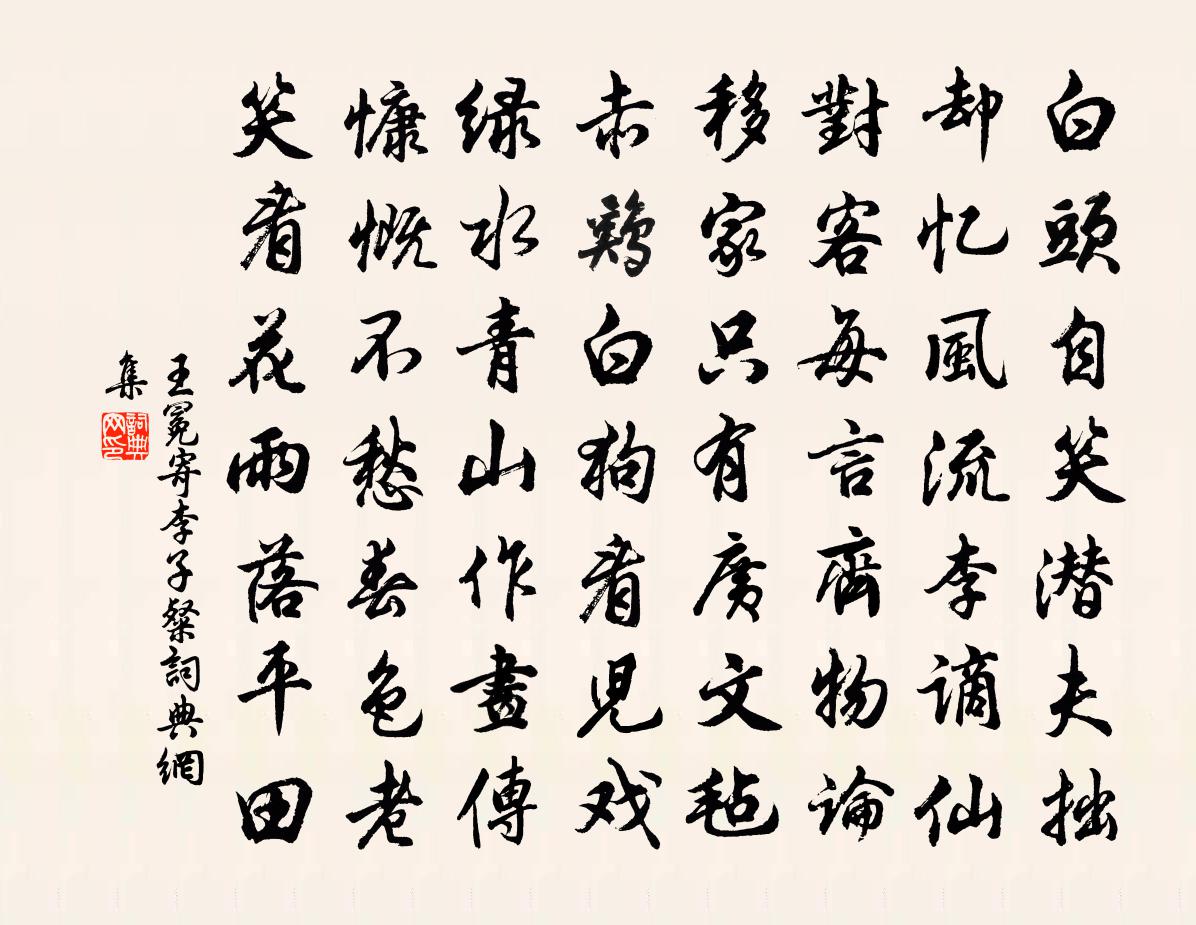 白頭自笑潜夫拙
却忆風流李谪仙
對客每言齊物論
移家只有廣文毡
赤鷄白狗看児戏
绿水青山作畫傳
慷慨不愁春色老
笑看花雨落平田
王冕寄李子粲詞典網
集
詞典
网印